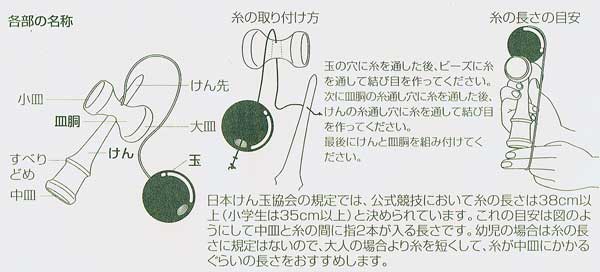 各部の名称
糸の取り付け方
糸の長さの目安
けん先
小皿
皿胴
大皿
けん
すべり
どめ
玉
中皿
玉の穴に糸を通した後、ビーズに糸
を通して結び目を作ってください。
次に皿胴の糸通し穴に糸を通した後、
けんの糸通し穴に糸を通して結び目
を作ってください。
最後にけんと皿胴を組み付けてく
ださい。
日本けん玉協会の規定では、公式競技において糸の長さは38cm以
上(小学生は35cm以上)と決められています。これの目安は図のよ
うにして中皿と糸の間に指2本が入る長さです。幼児の場合は糸の長
さに規定はないので、大人の場合より糸を短くして、糸が中皿にかかる
ぐらいの長さをおすすめします。